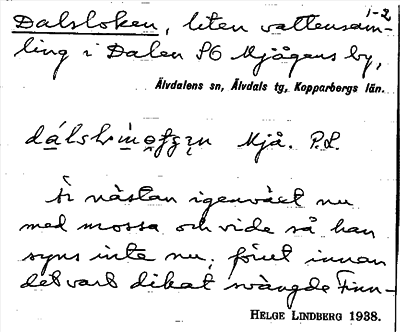 1-2
Dalsloken, liten vattensam-
ling i Dalen SO Mjågens by,
Älvdalens sn, Älvdals tg, Kopparbergs län.
Mjå. P.L.
Är nästan igenväxt nu
med mossa och vide så han
syns inte nu, förut innan
det vart dikat svängde Finn-
HELGE LINDBERG 1938.